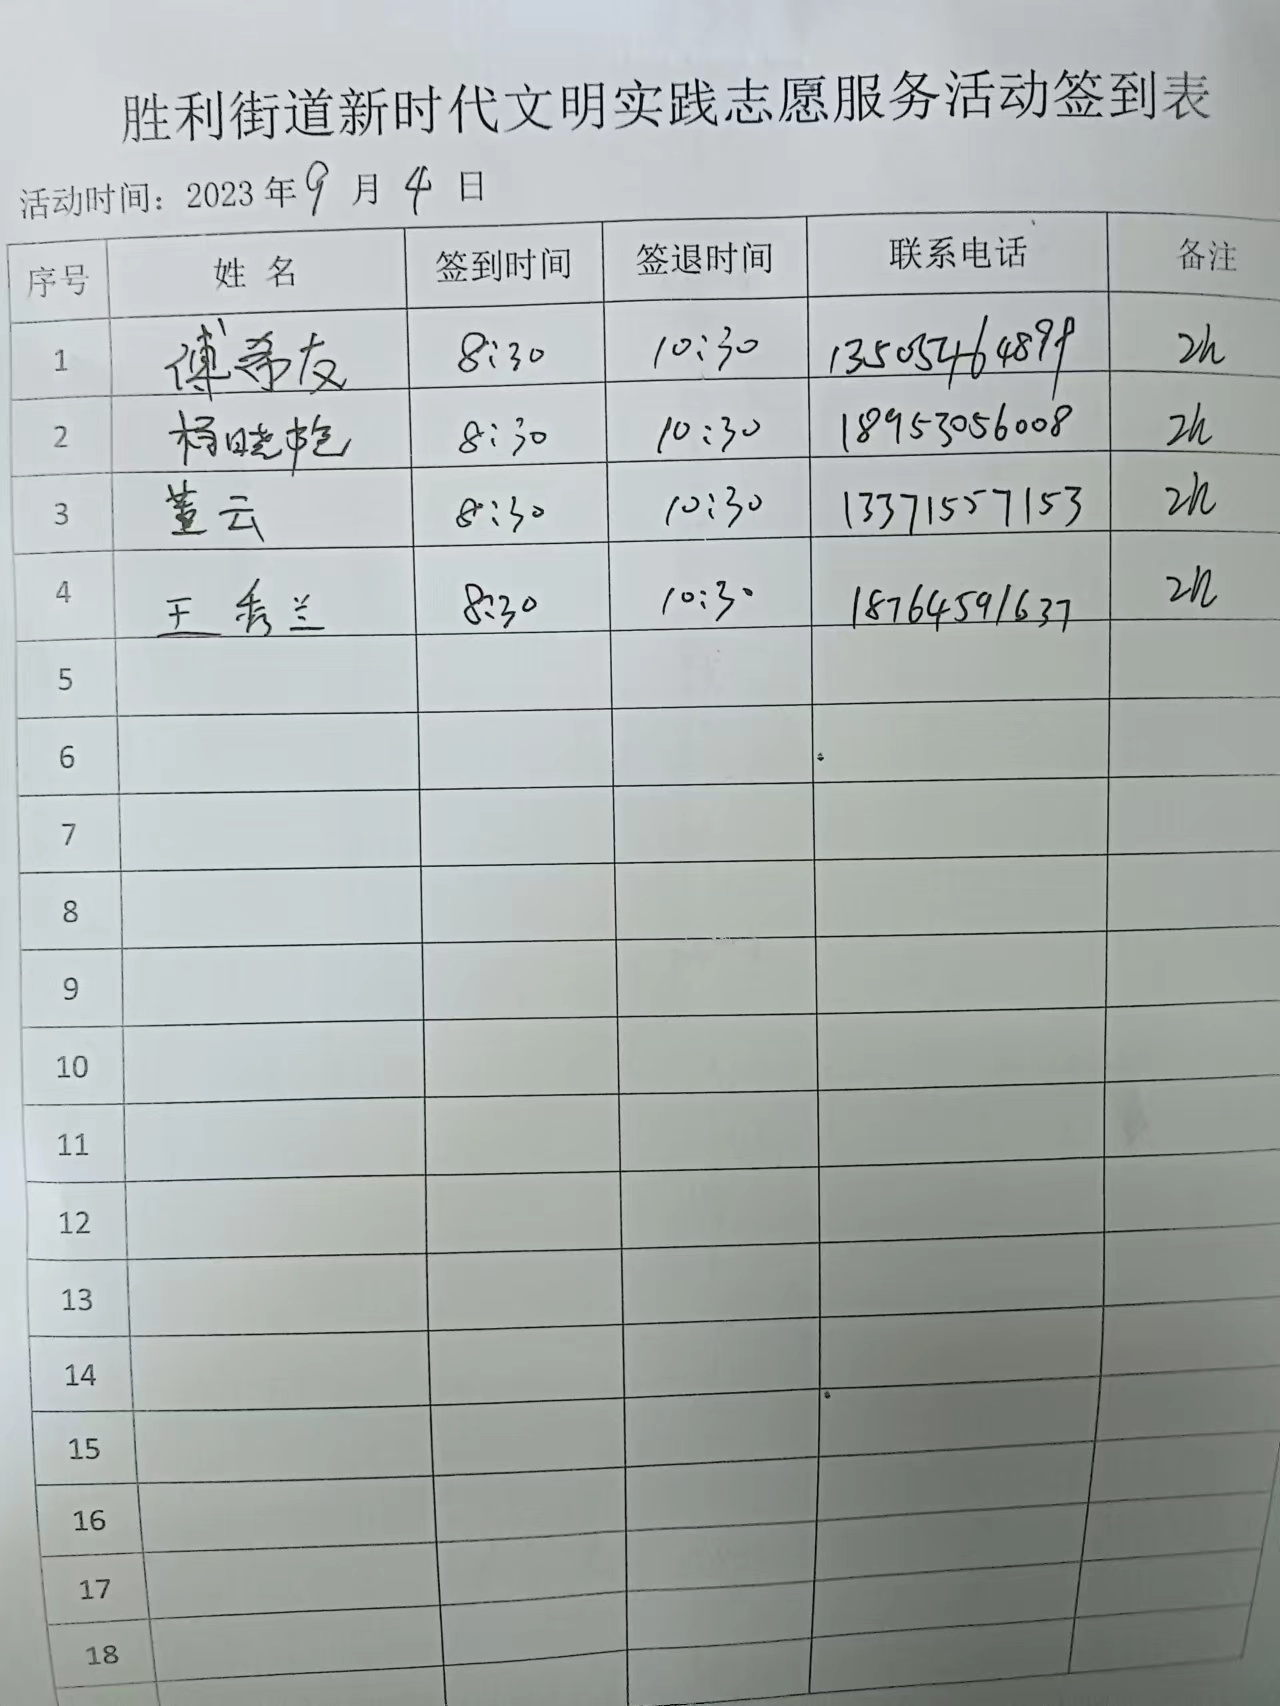 胜利街道新时代文明实践志愿服务活动签到表
活动时间：2023年9月4日
序号 姓名 签到时间 签退时间 联系电话 备注
1 傅希友 8:30 10:30 13505464899 2h
2 杨晓艳 8:30 10:30 18953056008 2h
3 董云 8:30 10:30 13371557153 2h
4 王秀兰 8:30 10:30 18764591637 2h
5
6
7
8
9
10
11
12
13
14
15
16
17
18